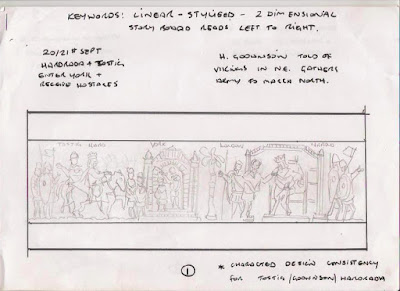 KEYWORDS: LINEAR - STYLISED - 2 DIMENSIONAL
STORY BOARD READS LEFT TO RIGHT.
20/21st SEPT
HARDRADA + TOSTIG
ENTER YORK +
RECEIVE HOSTAGES
H. GODWINSON TOLD OF
VIKINGS IN N.E. GATHERS
ARMY TO MARCH NORTH.
TOSTIG HARD YORK LONDON
①
* CHARACTER DESIGN CONSISTENCY
FOR TOSTIG/GODWINSON/HARDRADA